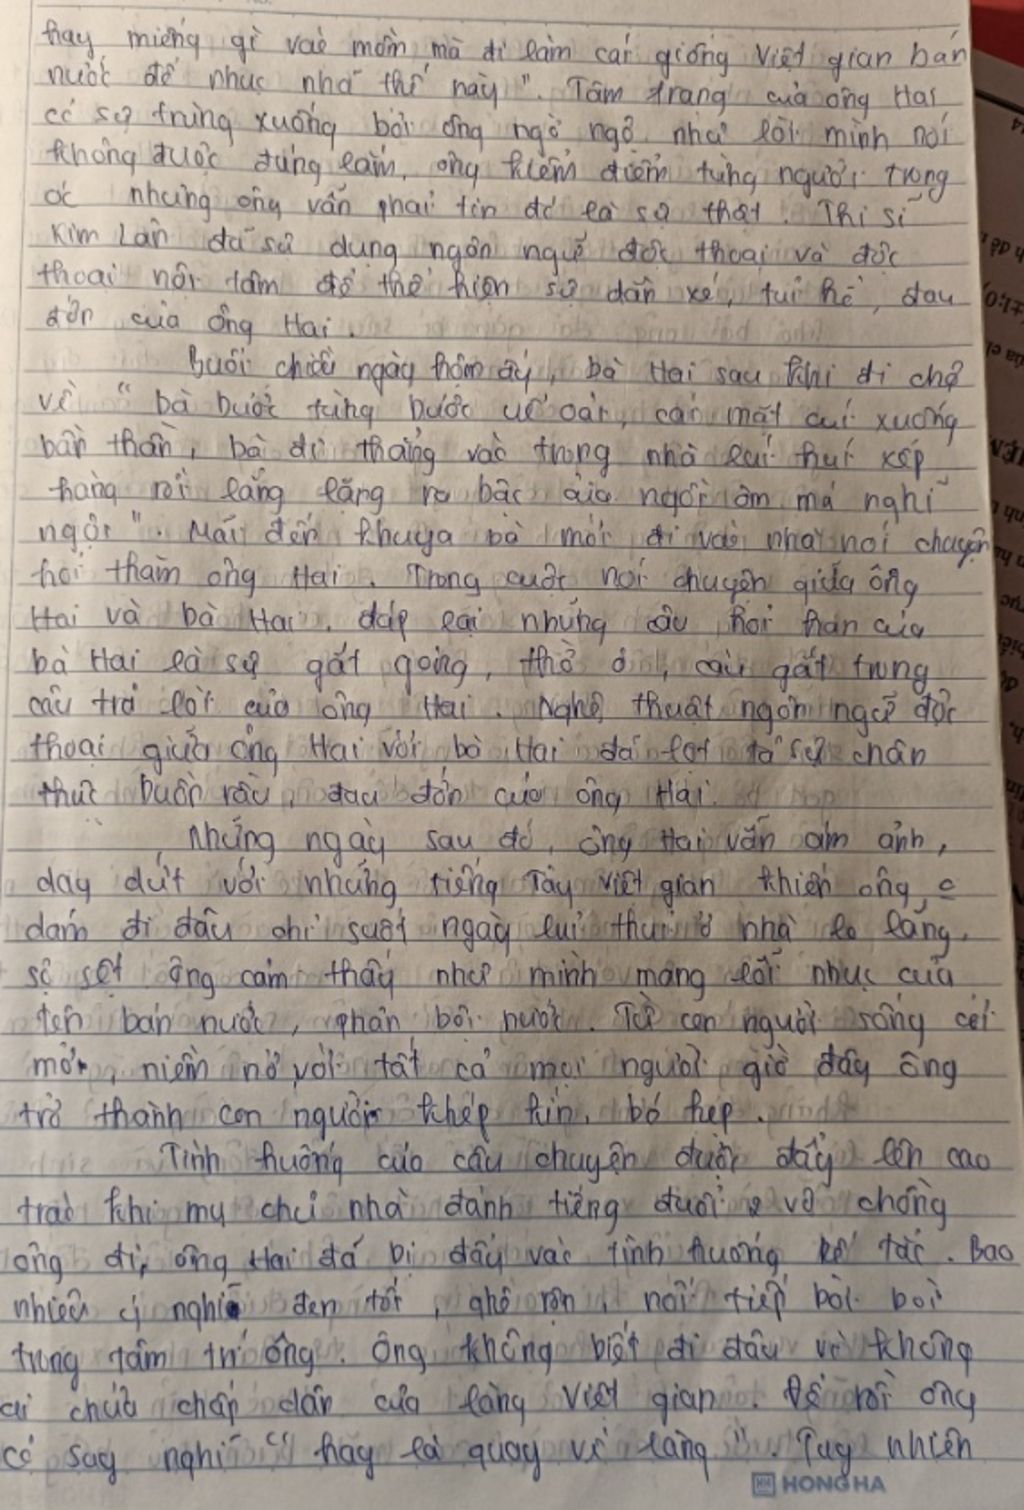 hay miếng gì vào mồm mà đi làm cái giống Việt gian bán
nước để nhục nhã thế này". Tâm trạng của ông Hai
có sự trùng xuống bởi ông ngờ ngợ như lời mình nói
không được đúng lắm, ông kiểm điểm từng người trong
óc nhưng ông vẫn phải tin đó là sự thật. Thi sĩ
Kim Lân đã sử dụng ngôn ngữ độc thoại và độc
thoại nội tâm để thể hiện sự dằn xé, tủi hổ, đau
đớn của ông Hai.
Buổi chiều ngày hôm ấy, bà Hai sau khi đi chợ
về "bà bước từng bước uể oải, cái mặt cúi xuống
bần thần, bà đi thẳng vào trong nhà lúi húi xếp
hàng rồi lẳng lặng ra bậc cửa ngồi ôm má nghĩ
ngợi". Mãi đến khuya bà mới đi vào nhà nói chuyện
hỏi thăm ông Hai. Trong cuộc nói chuyện giữa ông
Hai và bà Hai, đáp lại những câu hỏi han của
bà Hai là sự gắt gỏng, thờ ơ, cáu gắt trong
câu trả lời của ông Hai. Nghệ thuật ngôn ngữ độc
thoại giữa ông Hai với bà Hai đã lột tả sự chân
thực buồn rầu, đau đớn của ông Hai.
Những ngày sau đó, ông Hai vẫn ám ảnh,
day dứt với những tiếng Tây Việt gian khiến ông
dám đi đâu chỉ suốt ngày lủi thủi ở nhà lo lắng,
sợ sệt ông cảm thấy như mình mang lỗi nhục của
tên bán nước, phản bội nước. Từ con người sống cởi
mở, niềm nở với tất cả mọi người giờ đây ông
trở thành con người khép kín, bó hẹp.
Tình huống của câu chuyện được đẩy lên cao
trào khi mụ chủ nhà đánh tiếng đuổi vợ chồng
ông đi, ông Hai đã bị đẩy vào tình huống bế tắc. Bao
nhiêu ý nghĩ đen tối, ghê rợn, nối tiếp bời bời
trong tâm trí ông. Ông không biết đi đâu vì không
ai chứa chấp dân của làng Việt gian. Để rồi ông
có suy nghĩ "hay là quay về làng". Tuy nhiên
HONG HA